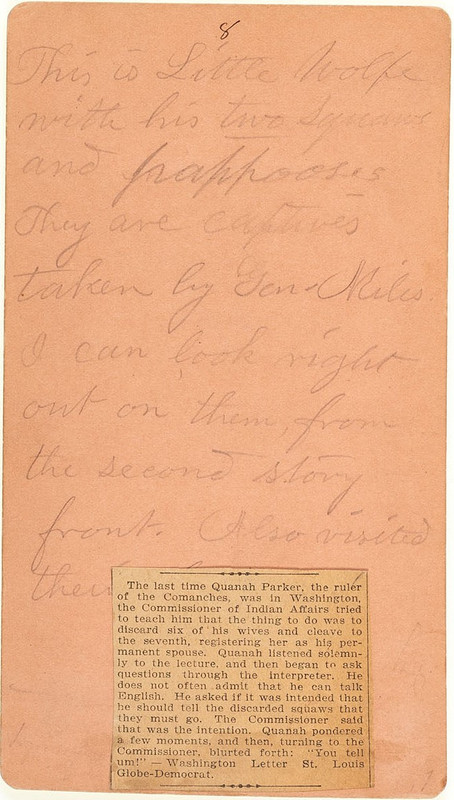 8
This is Little Wolfe
with his two squaws
and pappooses
They are captives
taken by Gen Miles.
I can look right
out on them, from
the second story
front. Also visited
The last time Quanah Parker, the ruler
of the Comanches, was in Washington,
the Commissioner of Indian Affairs tried
to teach him that the thing to do was to
discard six of his wives and cleave to
the seventh, registering her as his per-
manent spouse. Quanah listened solemn-
ly to the lecture, and then began to ask
questions through the interpreter. He
does not often admit that he can talk
English. He asked if it was intended that
he should tell the discarded squaws that
they must go. The Commissioner said
that was the intention. Quanah pondered
a few moments, and then, turning to the
Commissioner, blurted forth: "You tell
um!" — Washington Letter St. Louis
Globe-Democrat.